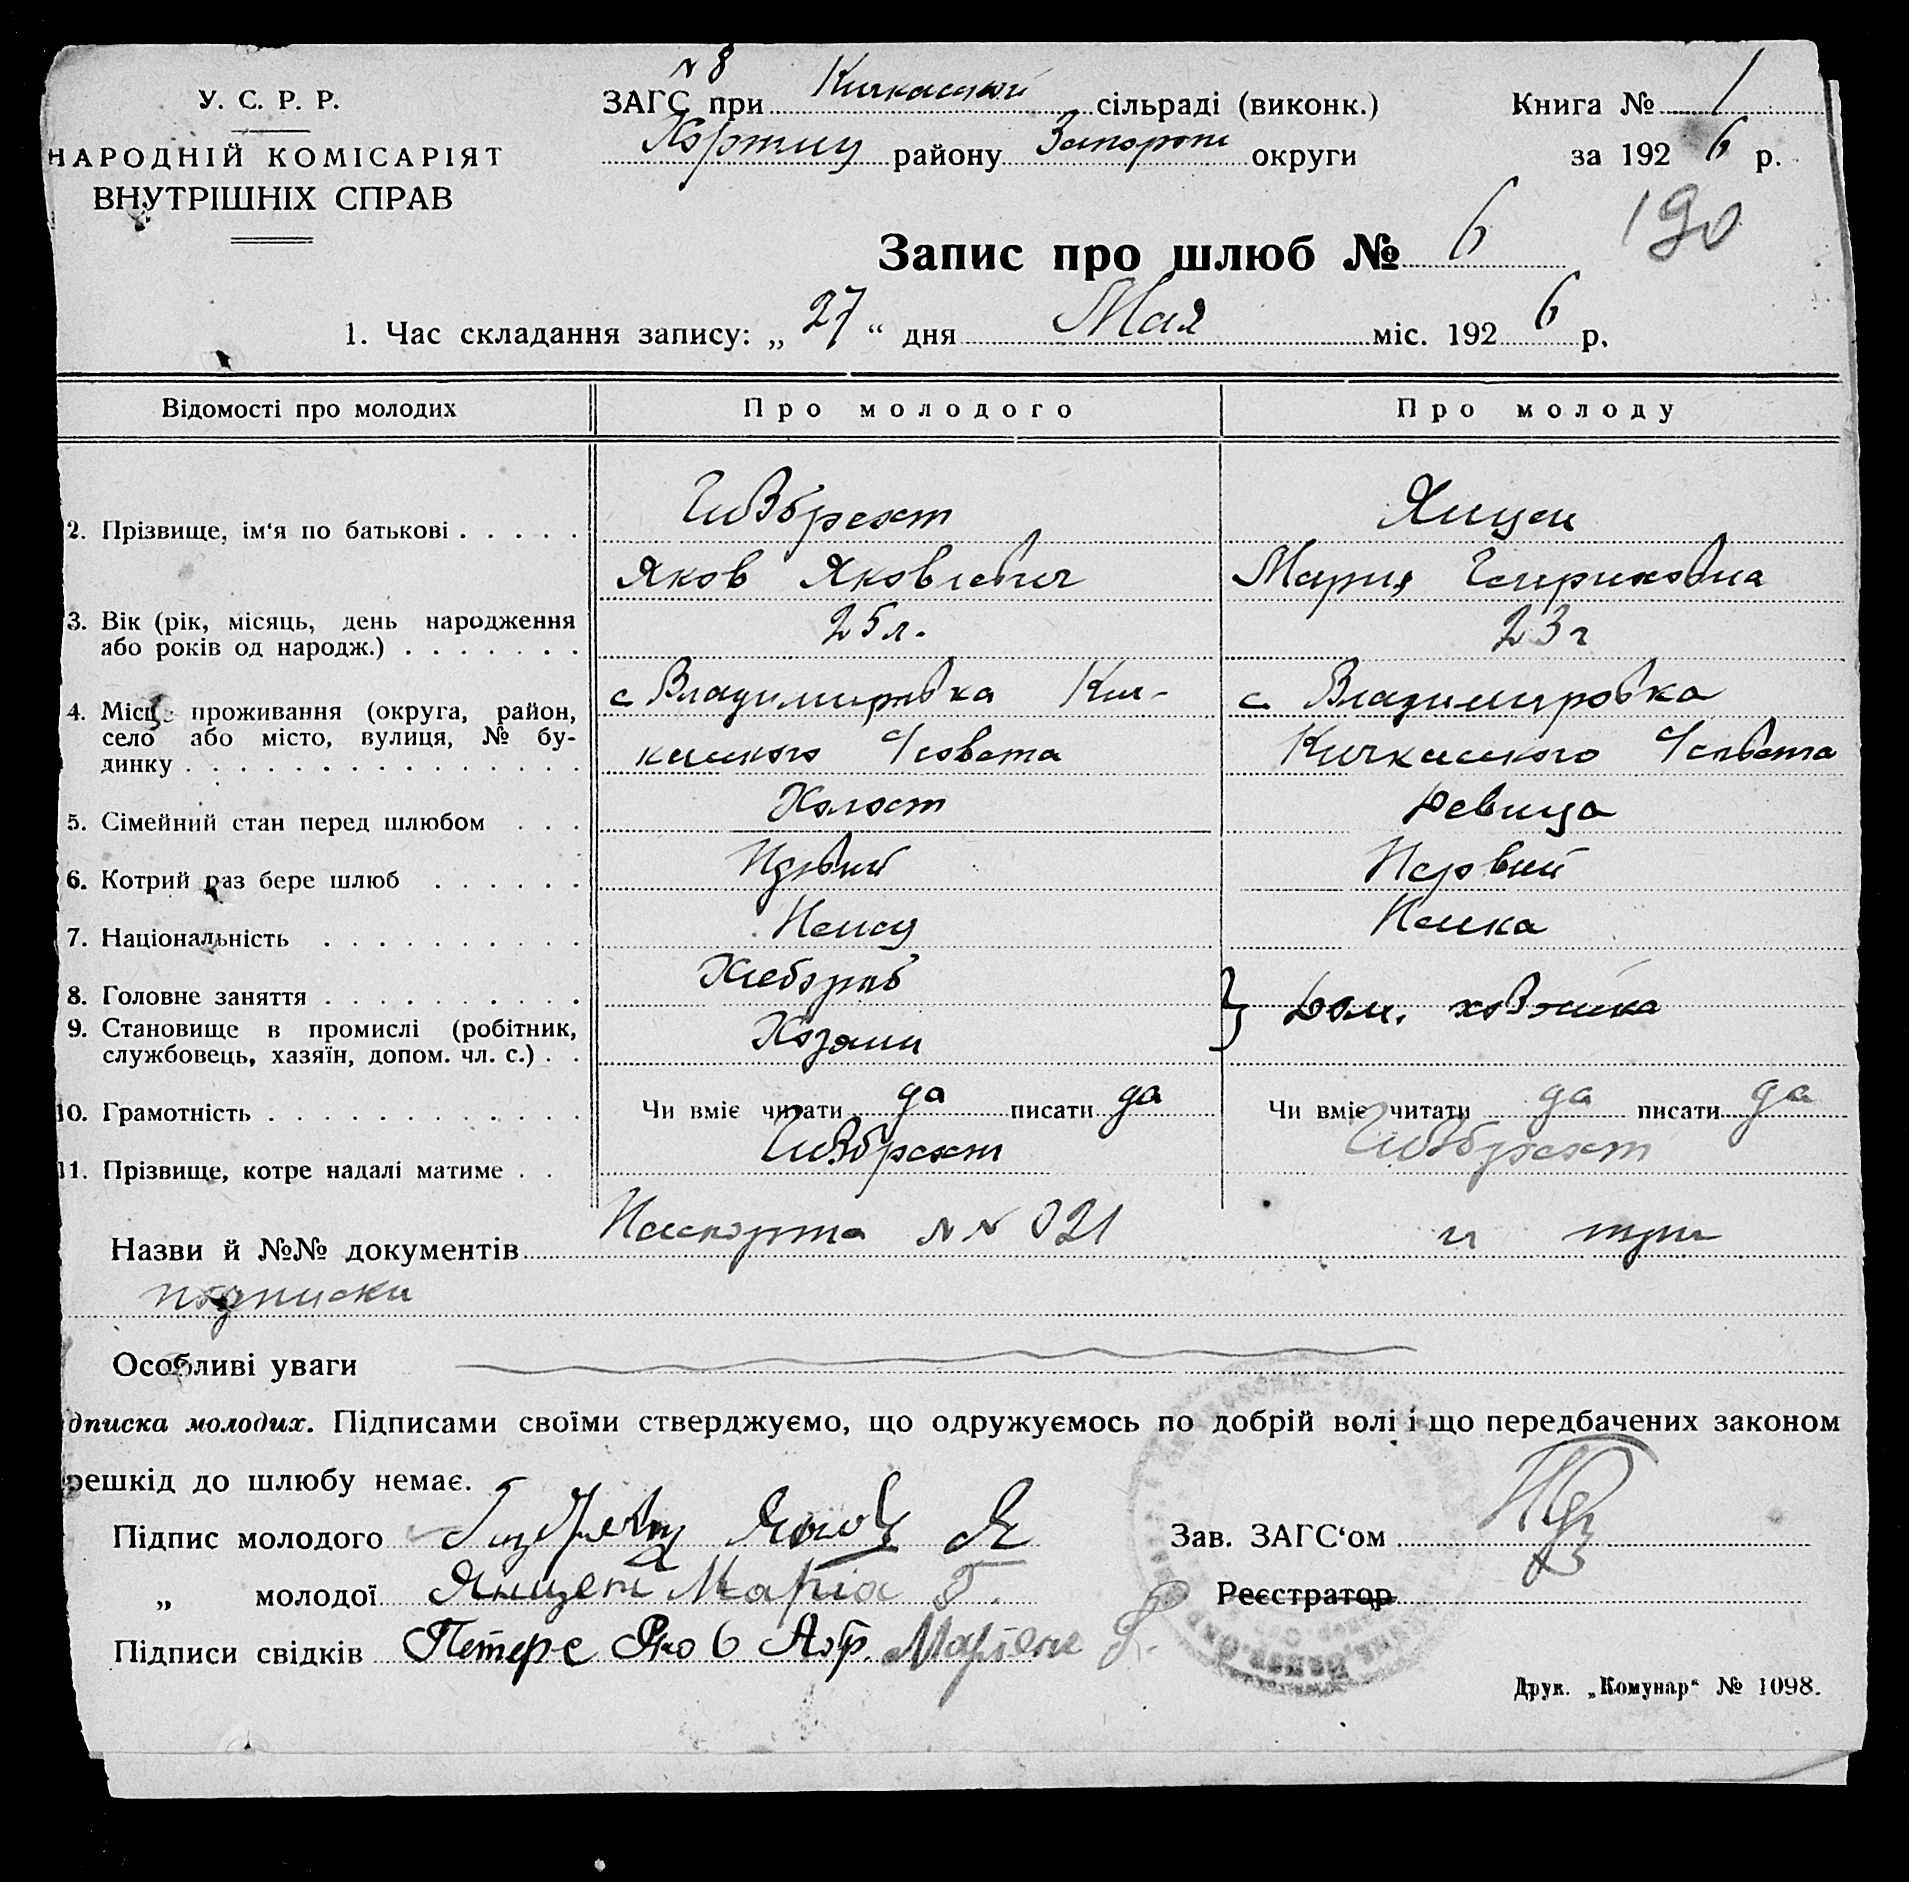 У. С. Р. Р.
НАРОДНІЙ КОМІСАРІЯТ
ВНУТРІШНІХ СПРАВ
N 8
ЗАГС при Кичкасській сільраді (виконк.)
Хортиц району Запорож округи
Книга № 1
за 1926 р.
190
Запис про шлюб № 6
1. Час складання запису: „27“ дня Мая міс. 1926 р.
Відомості про молодих Про молодого Про молоду
2. Прізвище, ім'я по батькові . . . . . Гизбрехт Янцен
Яков Яковлевич Мария Генриховна
3. Вік (рік, місяць, день народження або років од народж.) . . . . . . . 25 л. 23 г
4. Місце проживання (округа, район, село або місто, вулиця, № будинку . . . с Владимировка Кич- с. Владимировка
касского С/совета Кичкасского С/совета
5. Сімейний стан перед шлюбом . . . Холост Девица
6. Котрий раз бере шлюб . . . . . . Первий Первий
7. Національність . . . . . . . . . . Немец Немка
8. Головне заняття . . . . . . . . . . Хлебороб } Дом. хозяйка
9. Становище в промислі (робітник, службовець, хазяїн, допом. чл. с.) . . Хозяин
10. Грамотність . . . . . . . . . . . . Чи вміє читати да писати да Чи вміє читати да писати да
11. Прізвище, котре надалі матиме . . Гизбрехт Гизбрехт
Назви й №№ документів Паспорта N N 021 и три
подписки
Особливі уваги
дписка молодих. Підписами своїми стверджуємо, що одружуємось по добрій волі і що передбачених законом
решкід до шлюбу немає.
Підпис молодого Гизбрехт Яков Я
Зав. ЗАГС‘ом
„ молодої Янцен Мария Г.
Реєстратор
Підписи свідків Петерс Яков Абр.
Друк. „Комунар“ № 1098.